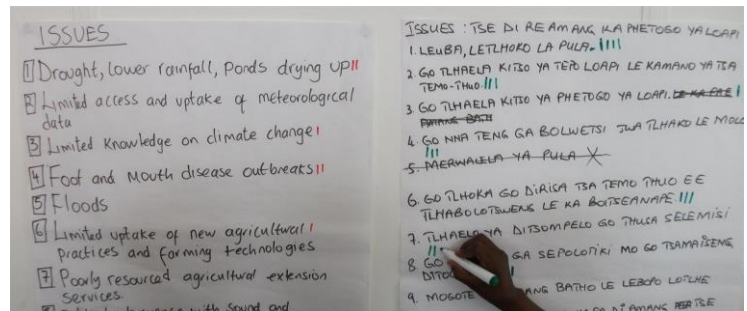 ISSUES
1 Drought, lower rainfall, Ponds drying up
2 Limited access and uptake of meteorological
data
3 Limited Knowledge on climate change
4 Foot and Mouth disease outbreaks
5 Floods
6 Limited uptake of new agricultural
practices and farming technologies
7 Poorly resourced agricultural extension
services
with sound and
ISSUES: TSE DI RE AMANG KA PHETOGO YA LOAPI
1. LEUBA, LETLHOKO LA PULA.
2. GO TLHAELA KITSO YA TEPO LOAPI LE KAMANO YA TSA
TEMO-THUO
3. GO TLHAELA KITSO YA PHETOGO YA LOAPI.
4. GO NNA TENG GA BOLWETSI JWA TLHAKO LE MOLO
5. MERWALELA YA PULA
6. GO TLHOKA GO DIRISA TSA TEMO THUO EE
TLHABOLOTSWENG LE KA BOITSEANAPE.
7. TLHAELO YA DITSOMPELO GO THUSA SELEMISI
8. GO GA SEPOLOTIKI MO GO TSAMAISENG
9. MOGOTE ANG BATHO LE LEBOPO LOTLHE